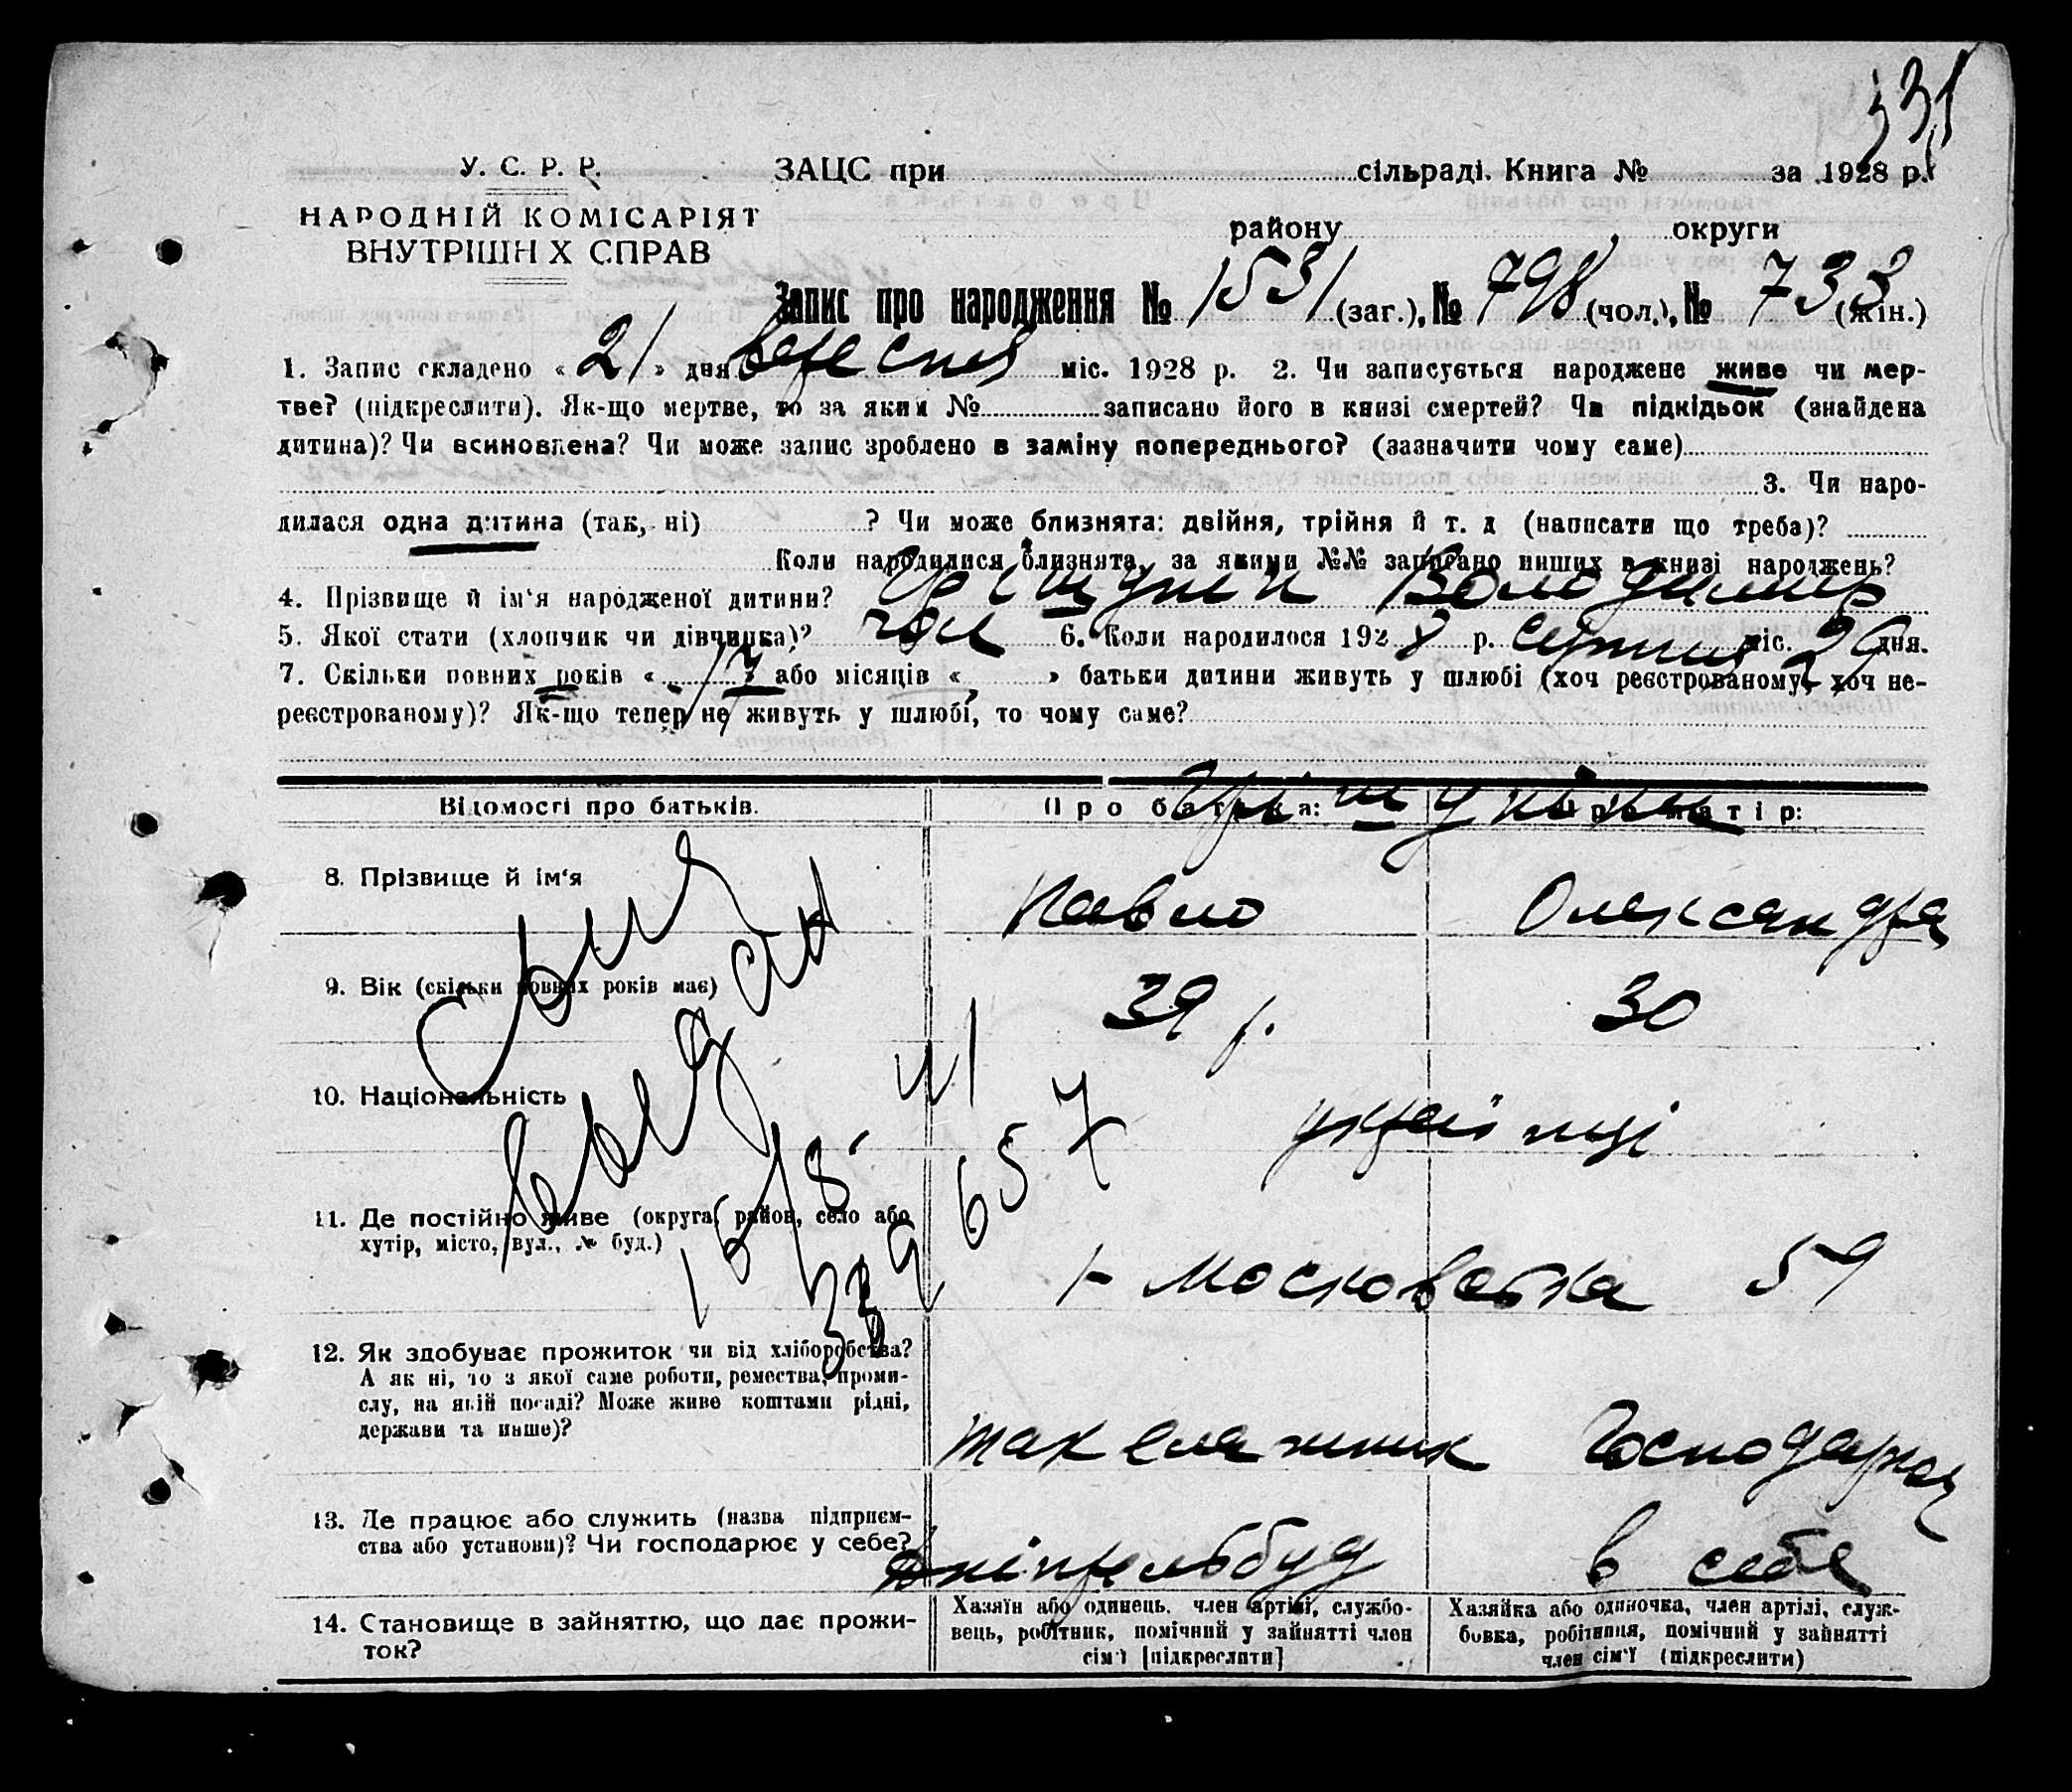 331
У. С. Р. Р. ЗАЦС при сільраді. Книга № за 1928 р.
НАРОДНІЙ КОМІСАРІЯТ
ВНУТРІШН Х СПРАВ
району округи
Запис про народження № 1531 (заг.), № 798 (чол.), № 733 (жін.)
1. Запис складено « 21 » дня вересня міс. 1928 р. 2. Чи записується народжене живе чи мер-
тве? (підкреслити). Як-що мертве, то за яким № записано його в книзі смертей? Чи підкідьок (знайдена
дитина)? Чи всиновлена? Чи може запис зроблено в заміну попереднього? (зазначити чому саме)
3. Чи наро-
дилася одна дитина (так, ні) ? Чи може близнята: двійня, трійня й т. д (написати що треба)?
Коли народилися близнята, за якими №№ записано инших в книзі народжень?
4. Прізвище й ім'я народженої дитини? Володимир
5. Якої стати (хлопчик чи дівчинка)? чол 6. Коли народилося 1928 р. серпня міс. 29 дня.
7. Скільки повних років « 17 » або місяців « » батьки дитини живуть у шлюбі (хоч реєстрованому, хоч не-
реєстрованому)? Як-що тепер не живуть у шлюбі, то чому саме?
Відомості про батьків. Про батька: Про матір:
8. Прізвище й ім'я Павло Олександра
9. Вік (скільки повних років має) 39 р. 30
10. Національність українці
11. Де постійно живе (округа, район, село або
хутір, місто, вул., № буд.) Московська 59
12. Як здобуває прожиток чи від хліборобства?
А як ні, то з якої саме роботи, ремества, проми-
слу, на якій посаді? Може живе коштами рідні,
держави та инше)? такелажник Господарка
13. Де працює або служить (назва підприєм-
ства або установи)? Чи господарює у себе? Дніпрельбуд в себе
14. Становище в зайняттю, що дає прожи-
ток?
Хазяїн або одинець, член артілі, службо-
вець, робітник, помічний у зайнятті член
сім'ї [підкреслити]
Хазяйка або одиночка, член артілі, служ-
бовка, робітниця, помічний у зайнятті
член сім'ї (підкреслити)